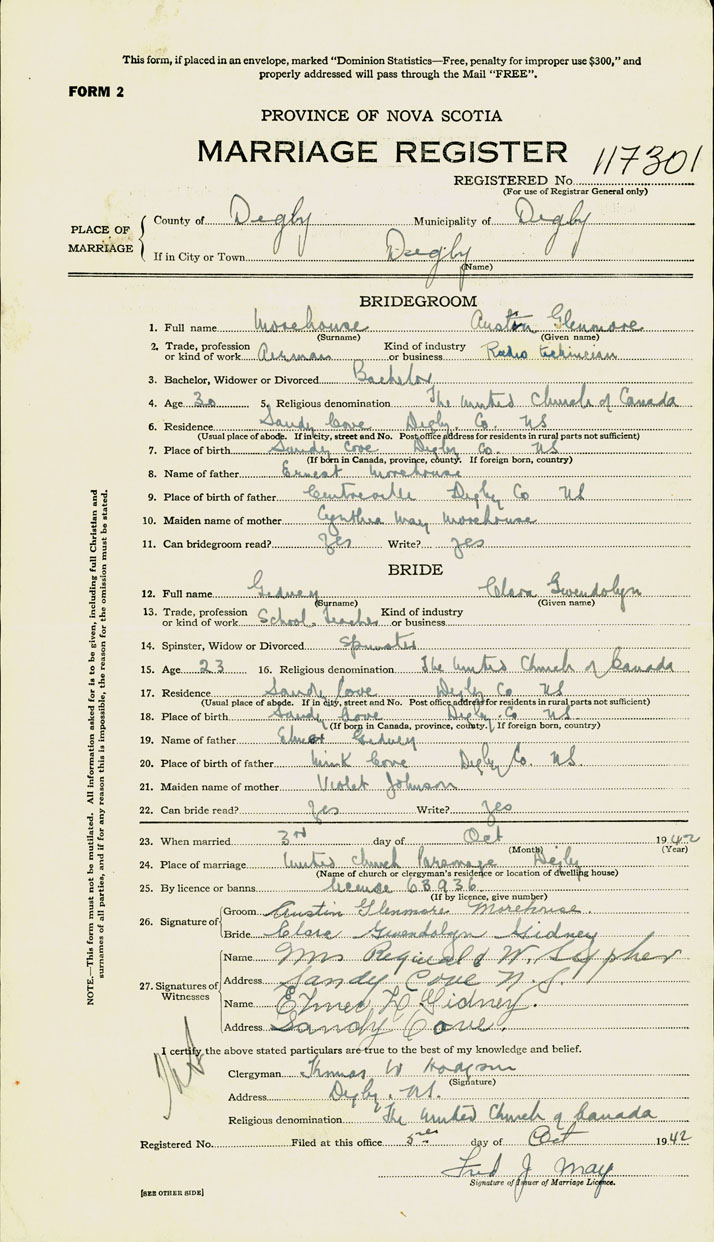 This form, if placed in an envelope, marked "Dominion Statistics—Free, penalty for improper use $300," and
properly addressed will pass through the Mail "FREE".
FORM 2
PROVINCE OF NOVA SCOTIA
MARRIAGE REGISTER
117301
REGISTERED No.
(For use of Registrar General only)
PLACE OF MARRIAGE
County of Digby Municipality of Digby
If in City or Town Digby
(Name)
BRIDEGROOM
1. Full name Morehouse Austin Glenmore
(Surname) (Given name)
2. Trade, profession or kind of work Airman Kind of industry or business Radio
3. Bachelor, Widower or Divorced Bachelor
4. Age 30 5. Religious denomination The United Church of Canada
6. Residence Sandy Cove Digby Co. NS
(Usual place of abode. If in city, street and No. Post office address for residents in rural parts not sufficient)
7. Place of birth Sandy Cove Digby Co. NS
(If born in Canada, province, county. If foreign born, country)
8. Name of father Ernest Morehouse
9. Place of birth of father Centreville Digby Co NS
10. Maiden name of mother Cynthia May Morehouse
11. Can bridegroom read? Yes Write? yes
BRIDE
12. Full name Gidney Clara Gwendolyn
(Surname) (Given name)
13. Trade, profession or kind of work School Teacher Kind of industry or business
14. Spinster, Widow or Divorced Spinster
15. Age 23 16. Religious denomination The United Church of Canada
17. Residence Sandy Cove Digby Co NS
(Usual place of abode. If in city, street and No. Post office address for residents in rural parts not sufficient)
18. Place of birth Sandy Cove Digby Co NS
(If born in Canada, province, county. If foreign born, country)
19. Name of father Elmer Gidney
20. Place of birth of father Mink Cove Digby Co. NS.
21. Maiden name of mother Violet Johnson
22. Can bride read? Yes Write? yes
23. When married 3rd day of Oct 1942
(Month) (Year)
24. Place of marriage United Church Parsonage Digby
(Name of church or clergyman's residence or location of dwelling house)
25. By licence or banns license 63936
(If by licence, give number)
26. Signature of
Groom Austin Glenmore Morehouse.
Bride Clara Gwendolyn Gidney
27. Signatures of Witnesses
Name Mrs Reginald W. Sypher
Address Sandy Cove N.S.
Name Elmer H Gidney.
Address Sandy Cove.
I certify the above stated particulars are true to the best of my knowledge and belief.
Clergyman Thomas W Hodgson
(Signature)
Address Digby. NS.
Religious denomination The United Church of Canada
Registered No. Filed at this office 5 day of Oct 1942
Fred J. May
Signature of Issuer of Marriage Licence.
[SEE OTHER SIDE]
NOTE.—This form must not be mutilated. All information asked for is to be given, including full Christian and
surnames of all parties, and if for any reason this is impossible, the reason for the omission must be stated.